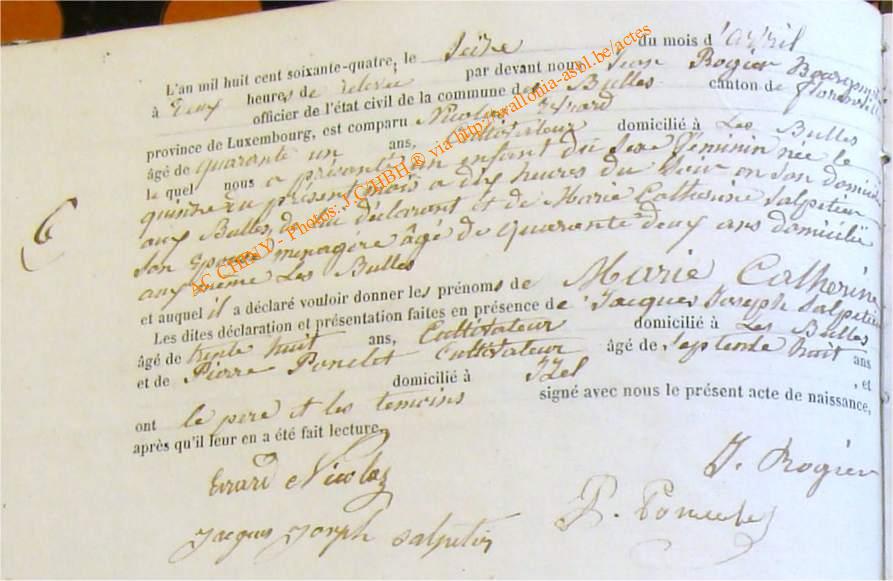 L'an mil huit cent soixante-quatre, le seize du mois d'avril
à deux heures de relevée par devant nous Jean Rogier Bourgmestre
officier de l'état civil de la commune des Bulles canton de florenville
province de Luxembourg, est comparu Nicolas Evrard
âgé de quarante un ans, Cultivateur domicilié à Les Bulles
le quel nous a présenté un enfant du sexe féminin née le
quinze du présent mois a dix heures du soir en son domicile
aux Bulles, de lui déclarant et de Marie Catherine Salpetier
son Epouse menagére âgé de quarante deux ans domiciliée
aux même Les Bulles
et auquel il a déclaré vouloir donner les prénoms de Marie Catherine
Les dites déclaration et présentation faites en présence de Jacques Joseph Salpetier
âgé de trente huit ans, Cultivateur domicilié à Les Bulles
et de Pierre Poncelet Cultivateur âgé de septente huit ans
domicilié à Izel , et
ont le pere et les temoins signé avec nous le présent acte de naissance,
après qu'il leur en a été fait lecture.
Evrard Nicolas J. Rogier
Jacques Joseph Salpetier P. Poncelet
6
AC CHINY - Photos: J.CHBH ® via http://wallonia-asbl.be/actes